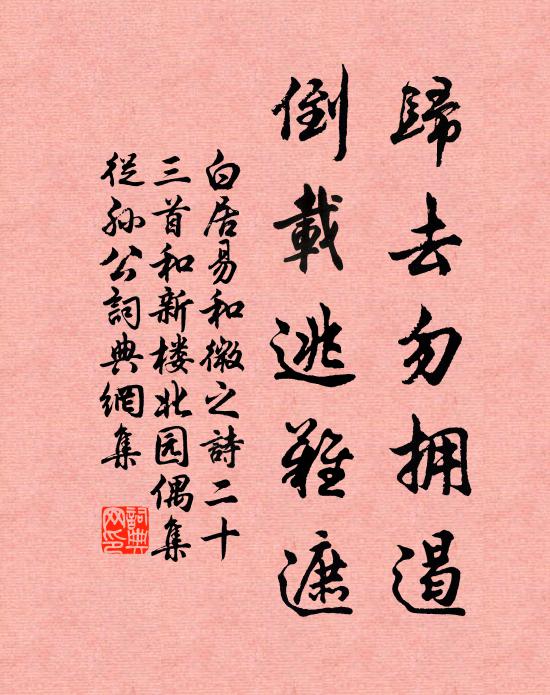 歸去勿拥遏
倒載逃難遮
白居易和微之詩二十
三首和新楼北园偶集
從孙公詞典網集
詞典网印